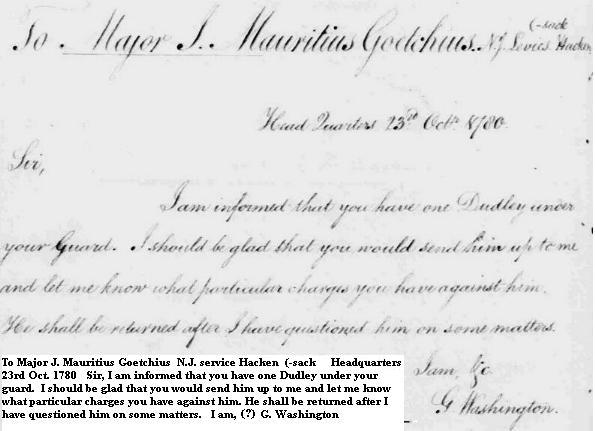 (-sack
To Major J. Mauritius Goetchius. N.J. Levies Hacken
Head Quarters 23rd Octr. 1780.
Sir,
I am informed that you have one Dudley under
your Guard. I should be glad that you would send him up to me
and let me know what particular charges you have against him.
He shall be returned after I have questioned him on some matters.
I am, &c.
G Washington.
To Major J. Mauritius Goetchius N.J. service Hacken (-sack Headquarters
23rd Oct. 1780 Sir, I am informed that you have one Dudley under your
guard. I should be glad that you would send him up to me and let me know
what particular charges you have against him. He shall be returned after I
have questioned him on some matters. I am, (?) G. Washington